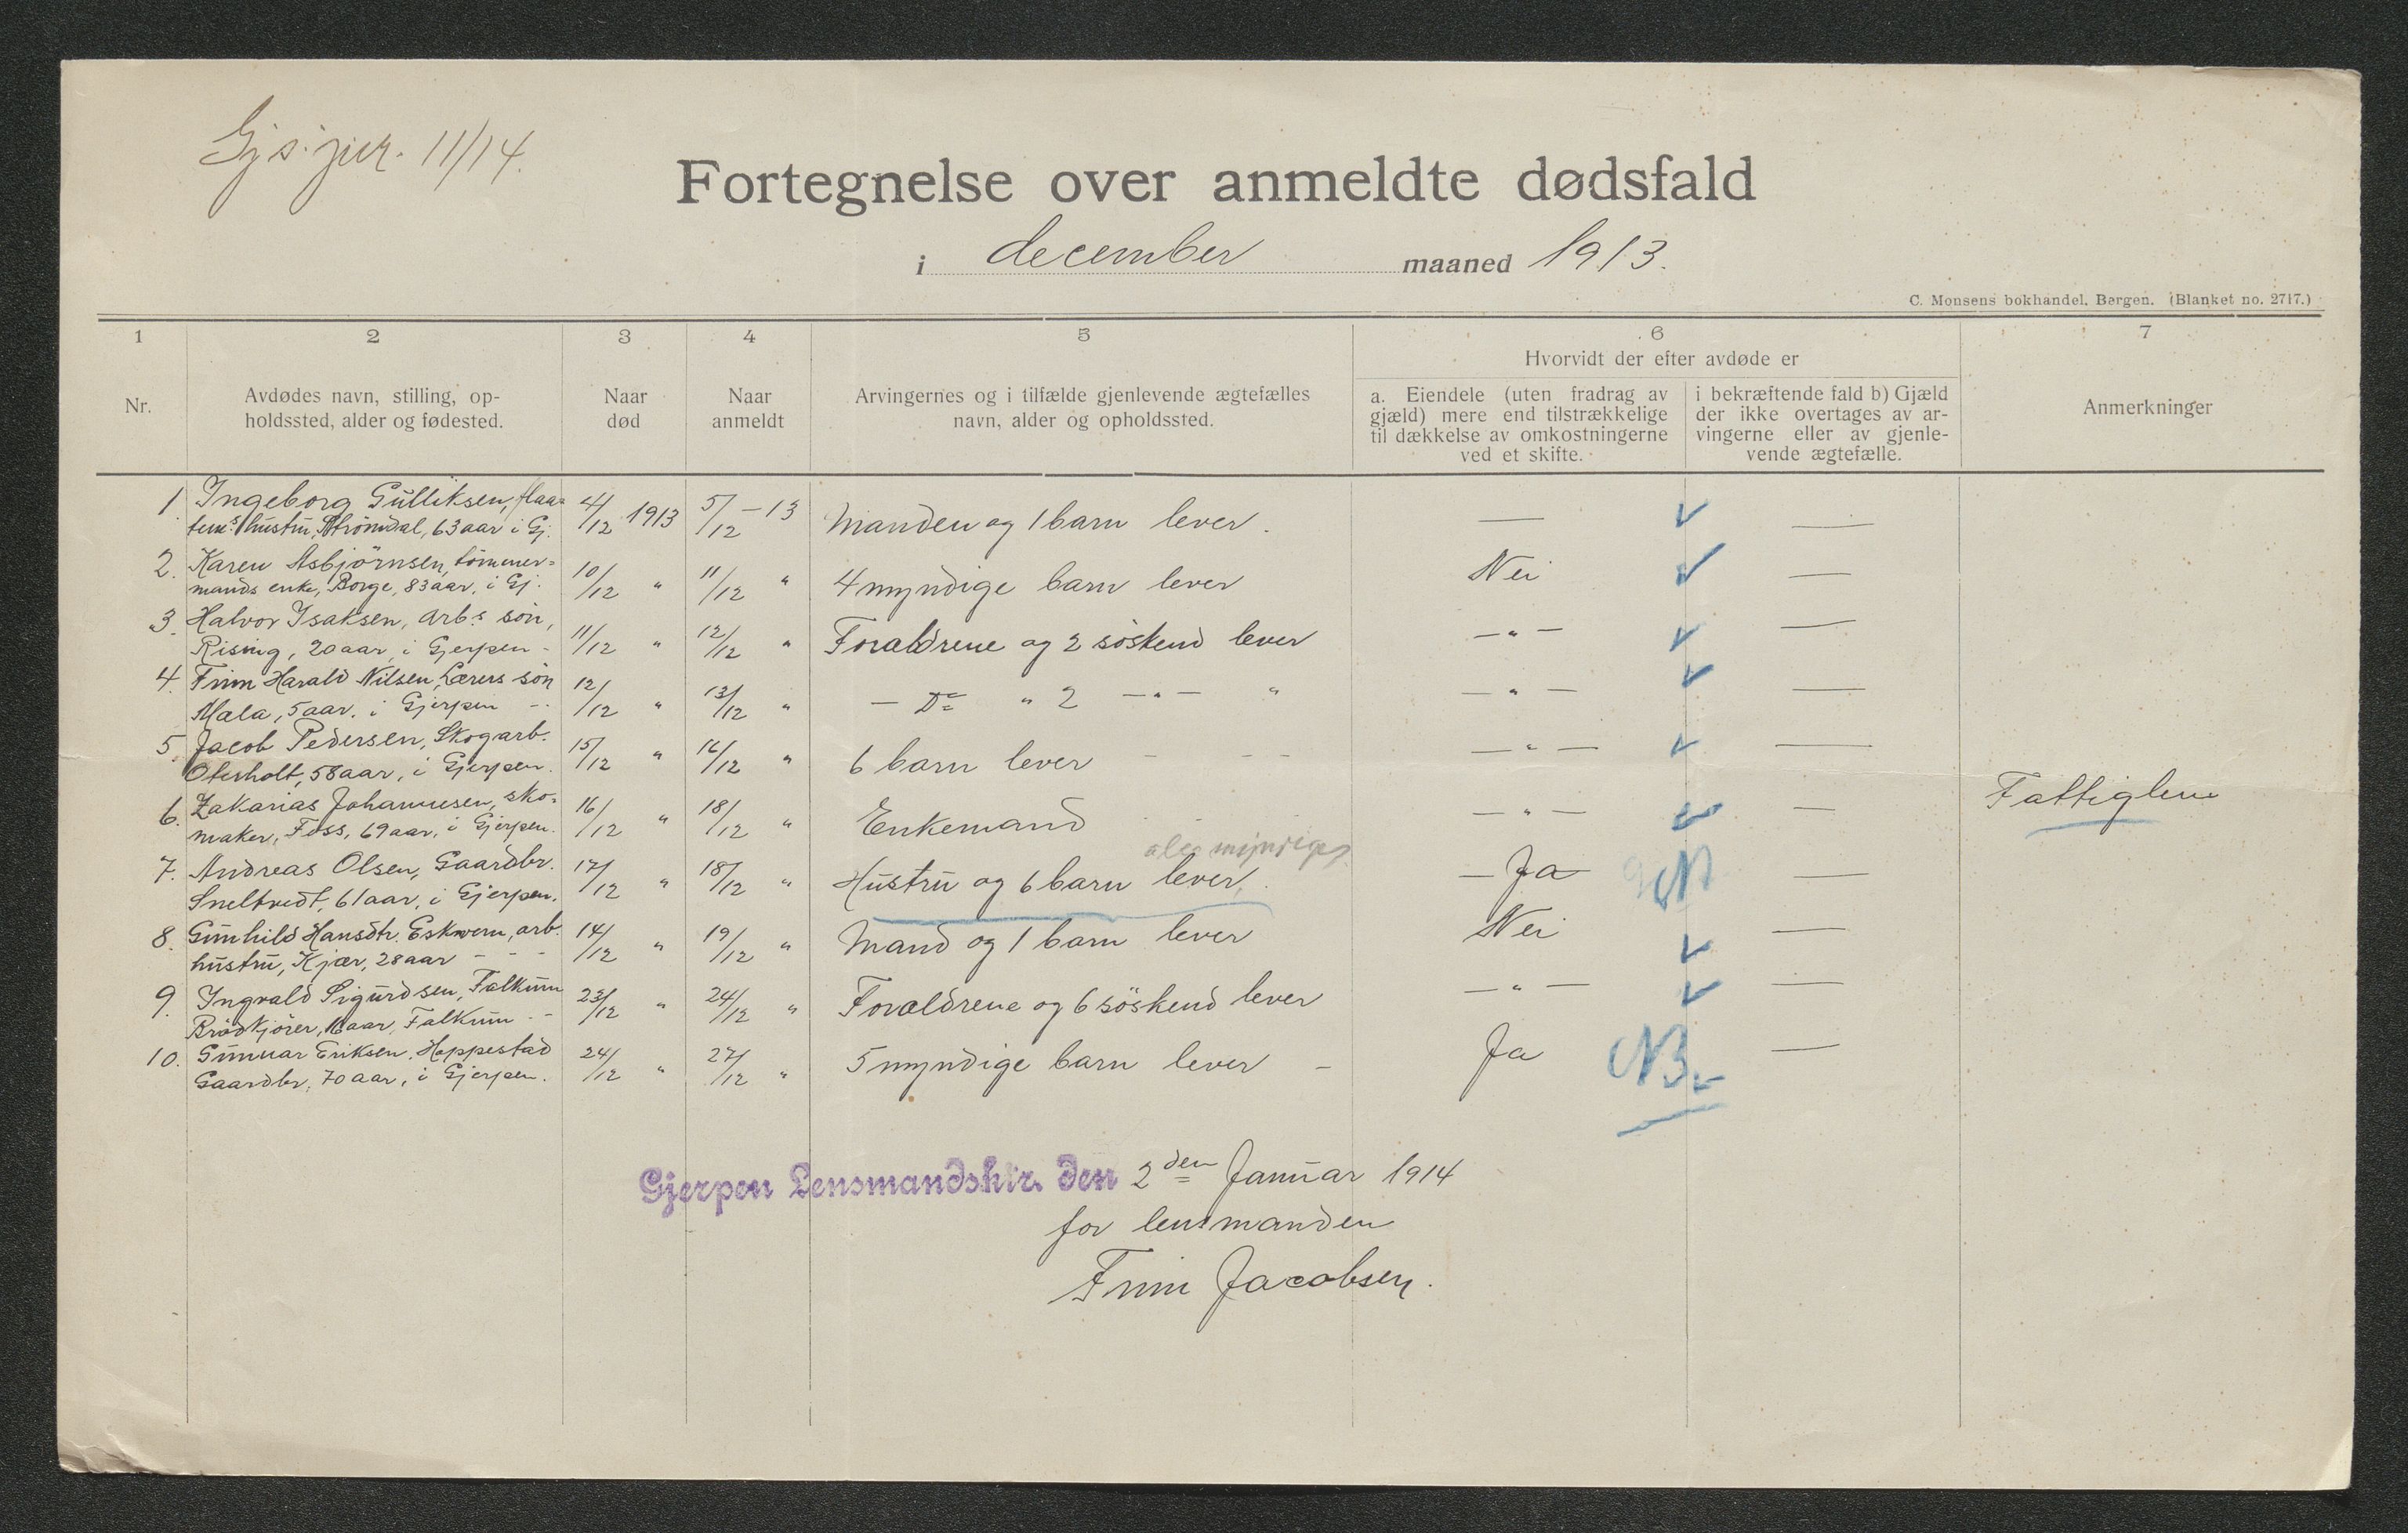 Gjs. jnr. 11/14.
Fortegnelse over anmeldte dødsfald
i december maaned 1913.
C. Monsens bokhandel, Bergen. (Blanket no. 2717.)
1 2 3 4 5 6 7
Hvorvidt der efter avdøde er
Nr.
Avdødes navn, stilling, op-
holdssted, alder og fødested.
Naar
død
Naar
anmeldt
Arvingernes og i tilfælde gjenlevende ægtefælles
navn, alder og opholdssted.
a. Eiendele (uten fradrag av
gjæld) mere end tilstrækkelige
til dækkelse av omkostningerne
ved et skifte.
i bekræftende fald b) Gjæld
der ikke overtages av ar-
vingerne eller av gjenle-
vende ægtefælle.
Anmerkninger
1 Ingeborg Gulliksen,
hustru, Strömdal, 63 aar i Gj. 4/12 1913 5/12 – 13 Manden og 1 barn lever. — —
2. Karen Asbjörnsen, tömmer=
mands enke, Borge, 83 aar, i Gj. 10/12 " 11/12 " 4 myndige barn lever Nei —
3. Halvor Isaksen, arb.s sön,
Rising, 20 aar, i Gjerpen - 11/12 " 12/12 " Forældrene og 2 söskend lever — " — —
4. Finn Harald Nilsen, Lærers sön
Mæla, 5 aar, i Gjerpen -. 12/12 " 13/12 " — Do " 2 — " — " — " — —
5. Jacob Pedersen, Skogarb.
Oterholt, 58 aar, i Gjerpen. 15/12 " 16/12 " 6 barn lever - - - — " — —
6. Zakarias Johannesen, sko=
maker, Foss, 69 aar, i Gjerpen. 16/12 " 18/12 " Enkemand — " — — Fattiglem
alle myndige
7. Andreas Olsen, Gaardbr.
Sneltvedt, 61 aar, i Gjerpen. 17/12 " 18/12 " Hustru og 6 barn lever. — Ja — NB —
8. Gunhild Hansdtr. Eskvern, arb.
hustru, Kjær, 28 aar - - - 14/12 " 19/12 " Mand og 1 barn lever Nei —
9. Ingvald Sigurdsen, Falkum
Brödkjörer, 16 aar, Falkum - - 23/12 " 24/12 " Forældrene og 6 söskend lever — " — —
10. Gunnar Eriksen, Hoppestad
Gaardbr, 70 aar, i Gjerpen. 24/12 " 27/12 " 5 myndige barn lever - Ja NB. —
Gjerpen Lensmandsktr. den 2den Januar 1914
for lensmanden
Finn Jacobsen.